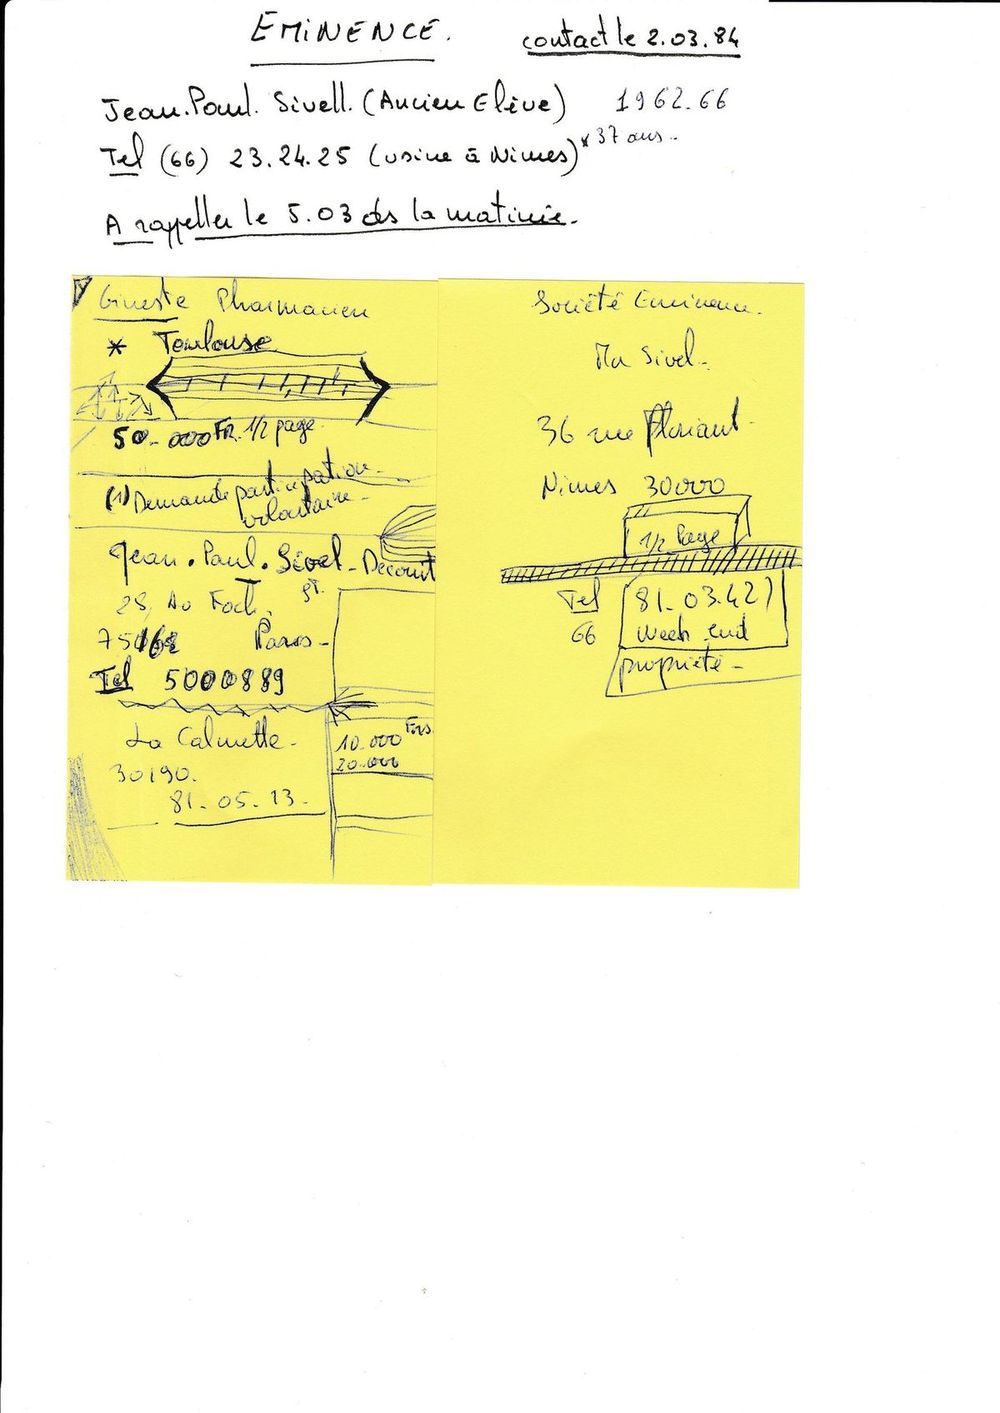 EMINENCE.
contact le 2.03.84
Jean.Paul. Sivell. (Ancien Elève) 1962.66
Tel (66) 23.24.25 (usine à Nimes) * 37 ans..
A rappeller le 5.03 dès la matinée.
Gineste Pharmacien
* Toulouse
50.000 FR. 1/2 page
(1) Demande participation
volontaire -
Jean. Paul. Sivel - Decourt
28, Av Foch.
Paris -
Tel 5000889
La Calmette -
30190.
81. 05. 13.
10.000 Frs.
20.000
Société Eminence.
Mr Sivel.
36 rue
Nimes 30000
1/2 Page
Tel
66
81. 03.42
Week end
propriété -